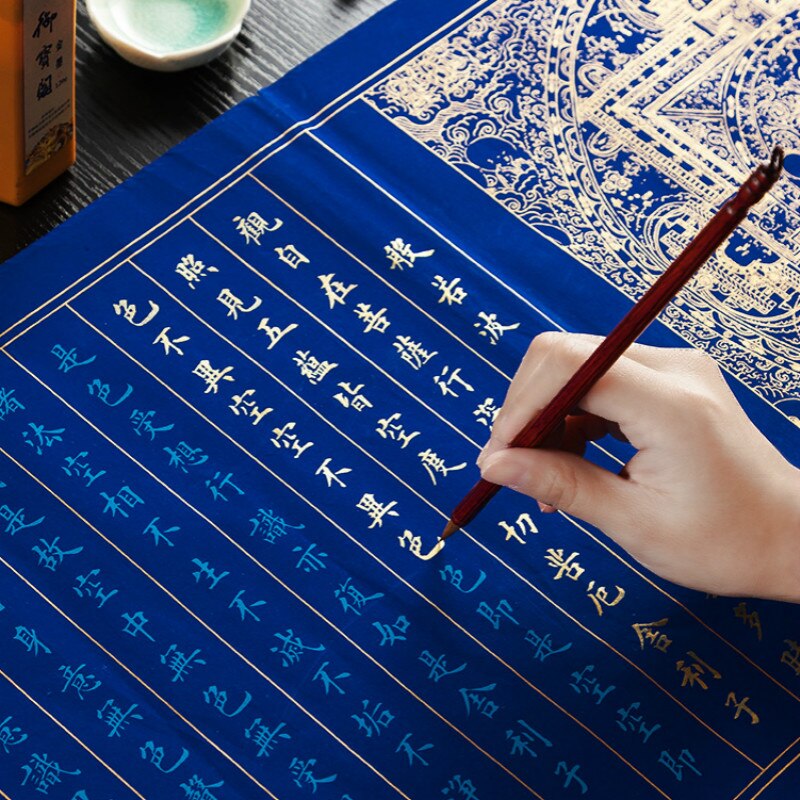 般若波
觀自在菩薩行深多時
照見五蘊皆空度切苦厄舍利子
色不異空空不異色色即是空空即
是色受想行識亦復如是舍利子
諸法空相不生不滅不垢不淨
是故空中無色無受
身意無色聲
意識
御寶閣
金墨